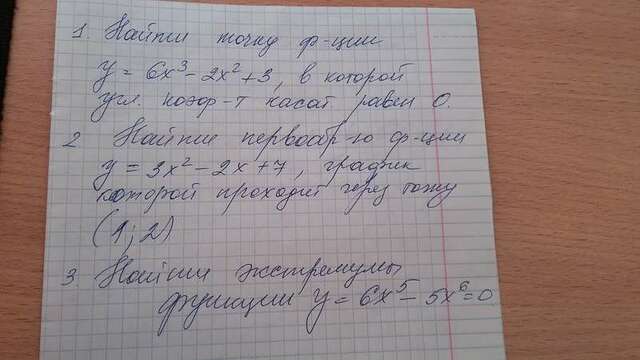 1 Найти точку ф-ции
y = 6x³ - 2x² + 3, в которой
угл. коэф-т касат равен 0.
2 Найти первообр-ю ф-ции
y = 3x² - 2x + 7, график
которой проходит через точку
(1; 2)
3. Найти экстремумы
функции y = 6x⁵ - 5x⁶ = 0